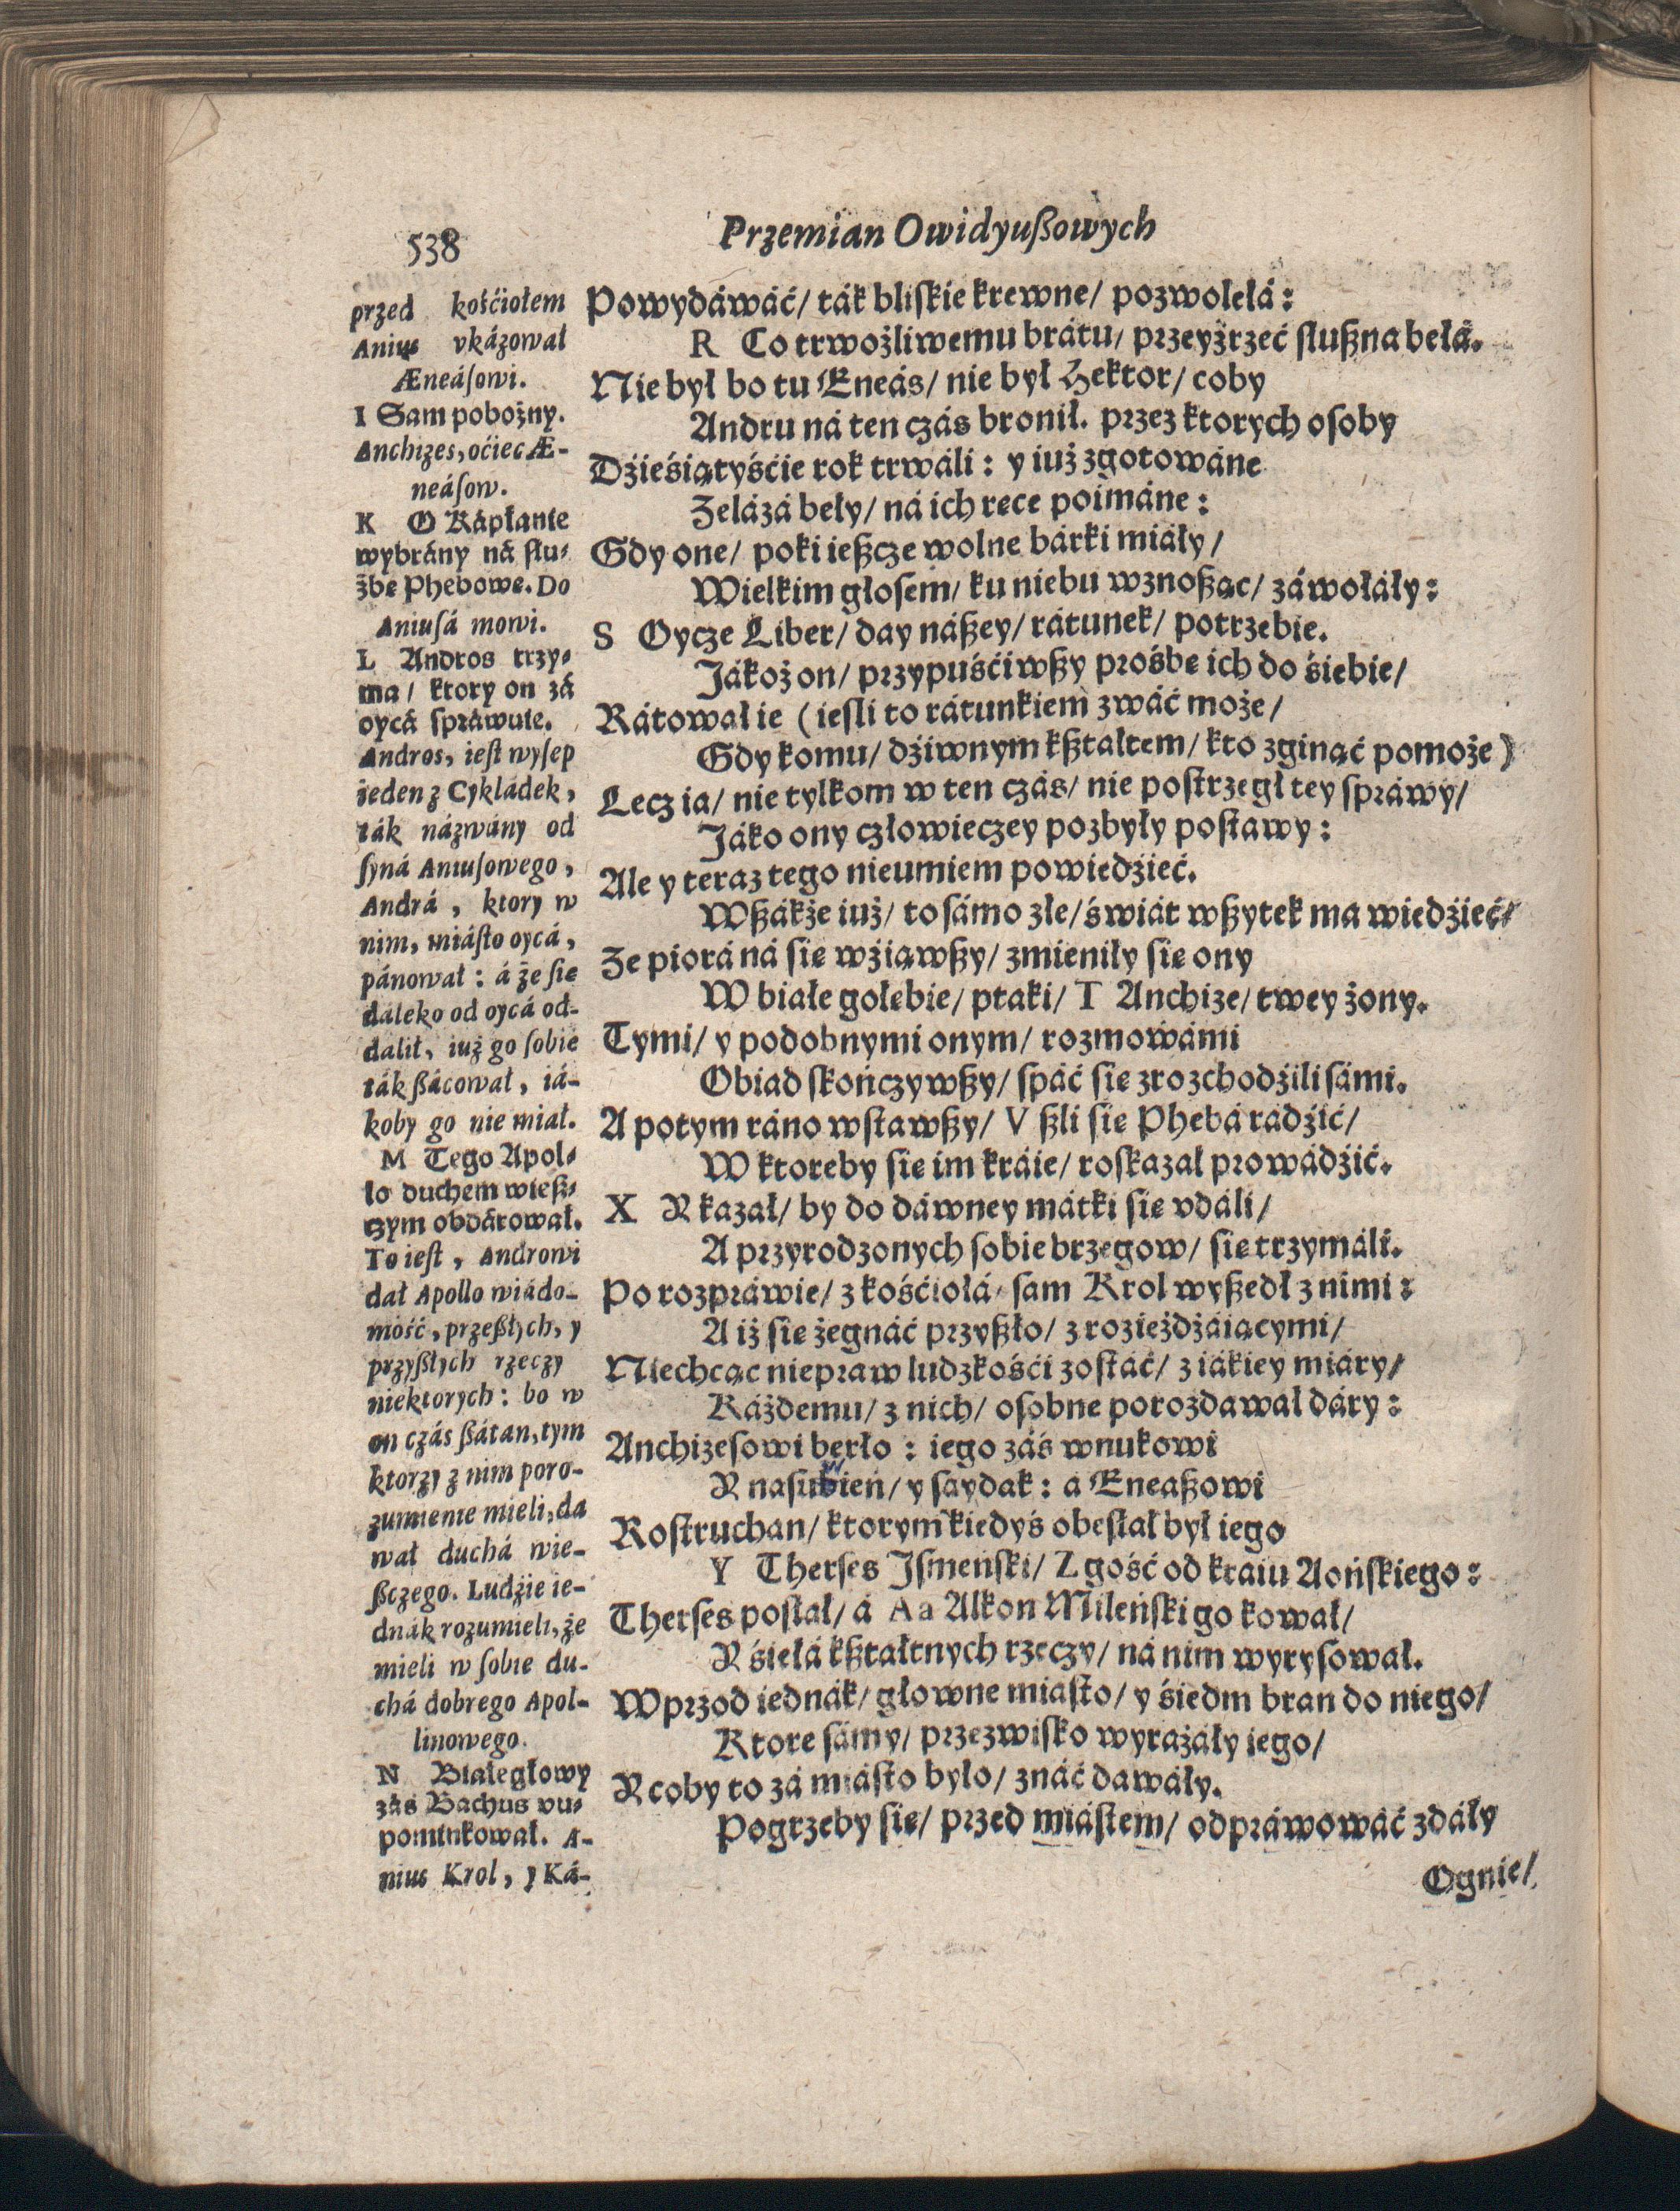 538
Przemian Owidyußowych
przed kośćiołem
Anius vkázował
Æneáſowi.
I Sam pobożny.
Anchizes, oćiec Æ-
neáſow.
K O Kápłanie
wybrány ná ſłu-
żbę Phebowę. Do
Aniuſá mowi.
L Andros trzy-
ma / ktory on zá
oycá ſpráwuie.
Andros, ieſt wyſep
ieden z Cykládek,
ták názwány od
ſyná Aniuſowego,
Andrá, ktory w
nim, miáſto oycá,
pánował: á że ſie
dáleko od oycá od-
dalił, iuż go ſobie
ták ßácował, iá-
koby go nie miał.
M Tego Apol-
lo duchem wieß-
czym obdárował.
To ieſt, Androwi
dał Apollo wiádo-
mość, przeßłych, y
przyßłych rzeczy
niektorych: bo w
on czás ßátan, tym
ktorzy z nim poro-
zumienie mieli, da
wał duchá wie-
ßczego. Ludźie ie-
dnák rozumieli, że
mieli w ſobie du-
chá dobrego Apol-
linowego.
N Białegłowy
zás Bachus vu-
pominkował. A-
nius Krol, y Ká-
Powydáwáć/ ták bliſkie krewne/ pozwolełá:
R Co trwożliwemu brátu/ przeyźrzeć ſłußna bełá.
Nie był bo tu Eneás/ nie był Hektor/ coby
Andru ná ten czás bronił. przez ktorych oſoby
Dźieśiątyśćie rok trwáli: y iuż zgotowáne
Żelázá beły/ ná ich ręce poimáne:
Gdy one/ poki ießcze wolne bárki miáły/
Wielkim głoſem/ ku niebu wznoßąc/ záwołáły:
S Oycze Liber/ day náßey/ rátunek/ potrzebie.
Jákoż on/ przypuśćiwßy prośbę ich do śiebie/
Rátował ie (ieſli to rátunkiem zwáć może/
Gdy komu/ dźiwnym kßtałtem/ kto zginąć pomoże)
Lecz ia/ nie tylkom w ten czás/ nie poſtrzegł tey ſpráwy/
Jáko ony człowieczey pozbyły poſtawy:
Ale y teraz tego nieumiem powiedźieć.
Wßákże iuż/ to sámo złe/ świát wßytek ma wiedźieć/
Że piorá ná ſię wźiąwßy/ zmieniły ſię ony
W białe gołębie/ ptaki/ T Anchize/ twey żony.
Tymi/ y podobnymi onym/ rozmowámi
Obiad ſkończywßy/ ſpáć ſię zrozchodźili sámi.
A potym ráno wſtawßy/ V ßli ſię Phebá rádźić/
W ktoreby ſię im kráie/ roſkazał prowádźić.
X Y kazał/ by do dáwney mátki ſię vdáli/
A przyrodzonych ſobie brzegow/ ſię trzymáli.
Po rozpráwie/ z kośćiołá/ ſam Krol wyßedł z nimi:
A iż ſię żegnáć przyßło/ z rozieżdżáiącymi/
Niechcąc niepraw ludzkośći zoſtáć/ z iákiey miáry/
Káżdemu/ z nich/ oſobne porozdawał dáry:
Anchizeſowi berło: iego záś wnukowi
Y naſuwień/ y ſaydak: a Eneaßowi
Roſtruchan/ ktorym kiedyś obeſłał był iego
Y Therſes Jſmeńſki/ Z gość od kraiu Aońſkiego:
Therſes poſłał/ á Aa Alkon Mileńſki go kował/
Y śiełá kßtałtnych rzeczy/ ná nim wyryſował.
Wprzod iednák/ głowne miaſto/ y śiedm bran do niego/
Ktore sámy/ przezwiſko wyrażáły iego/
Y coby to zá miáſto było/ znáć dawáły.
Pogrzeby ſię/ przed miáſtem/ odpráwowáć zdáły
Ognie/